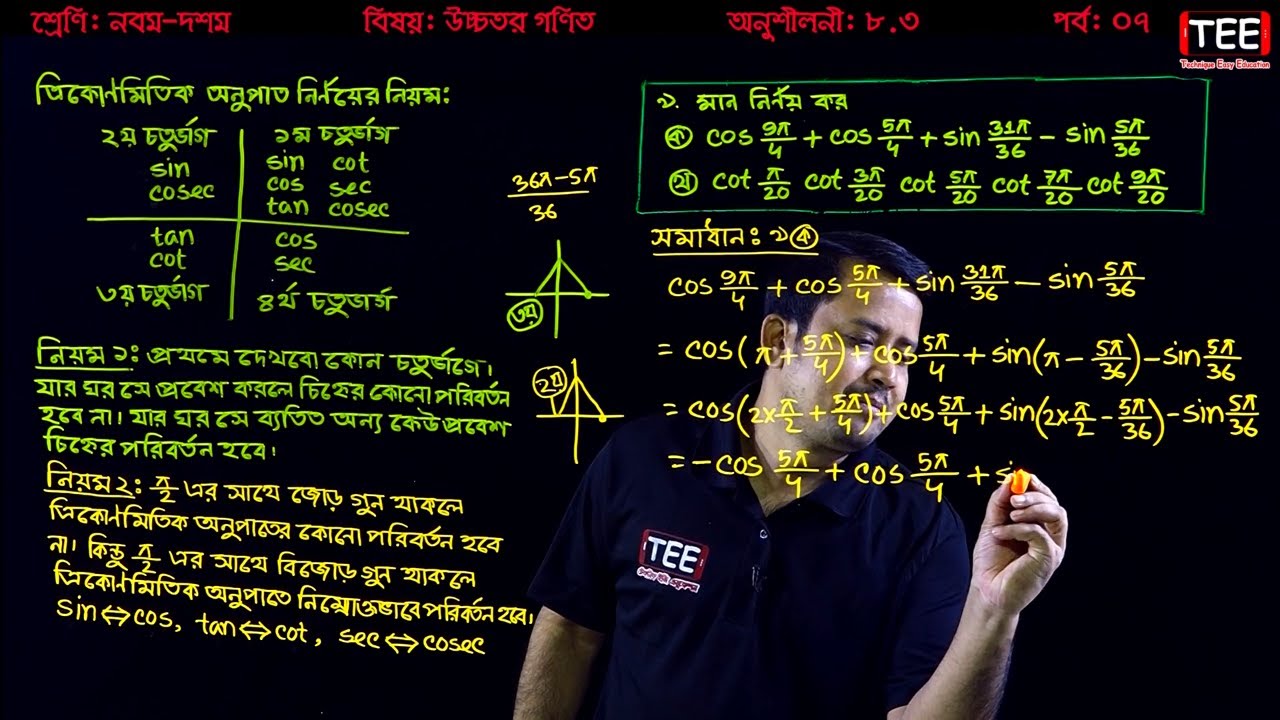 শ্রেণি: নবম-দশম
বিষয়: উচ্চতর গণিত
অনুশীলনী: ৮.৩
পর্ব: ০৭
TEE
Technique Easy Education
ত্রিকোণমিতিক অনুপাত নির্ণয়ের নিয়ম:
২য় চতুর্ভাগ ১ম চতুর্ভাগ
sin sin cot
cosec cos sec
tan cosec
tan cos
cot sec
৩য় চতুর্ভাগ ৪র্থ চতুর্ভাগ
নিয়ম ১: প্রথমে দেখবো কোন চতুর্ভাগে।
যার ঘর সে প্রবেশ করলে চিহ্নের কোনো পরিবর্তন
হবে না। যার ঘর সে ব্যতিত অন্য কেউ প্রবেশ
চিহ্নের পরিবর্তন হবে।
নিয়ম ২: π/2 এর সাথে জোড় গুন থাকলে
ত্রিকোণমিতিক অনুপাতের কোনো পরিবর্তন হবে
না। কিন্তু π/2 এর সাথে বিজোড় গুন থাকলে
ত্রিকোণমিতিক অনুপাতে নিম্নোক্তভাবে পরিবর্তন হবে।
sin⇔cos, tan⇔cot, sec⇔cosec
36π-5π/36
৩য়
২য়
১. মান নির্ণয় কর
ক cos 9π/4 + cos 5π/4 + sin 31π/36 - sin 5π/36
খ cot π/20 cot 3π/20 cot 5π/20 cot 7π/20 cot 9π/20
সমাধান: ১ ক
cos 9π/4 + cos 5π/4 + sin 31π/36 - sin 5π/36
= cos(π + 5π/4) + cos 5π/4 + sin(π - 5π/36) - sin 5π/36
= cos(2×π/2 + 5π/4) + cos 5π/4 + sin(2×π/2 - 5π/36) - sin 5π/36
= -cos 5π/4 + cos 5π/4 + si
TEE